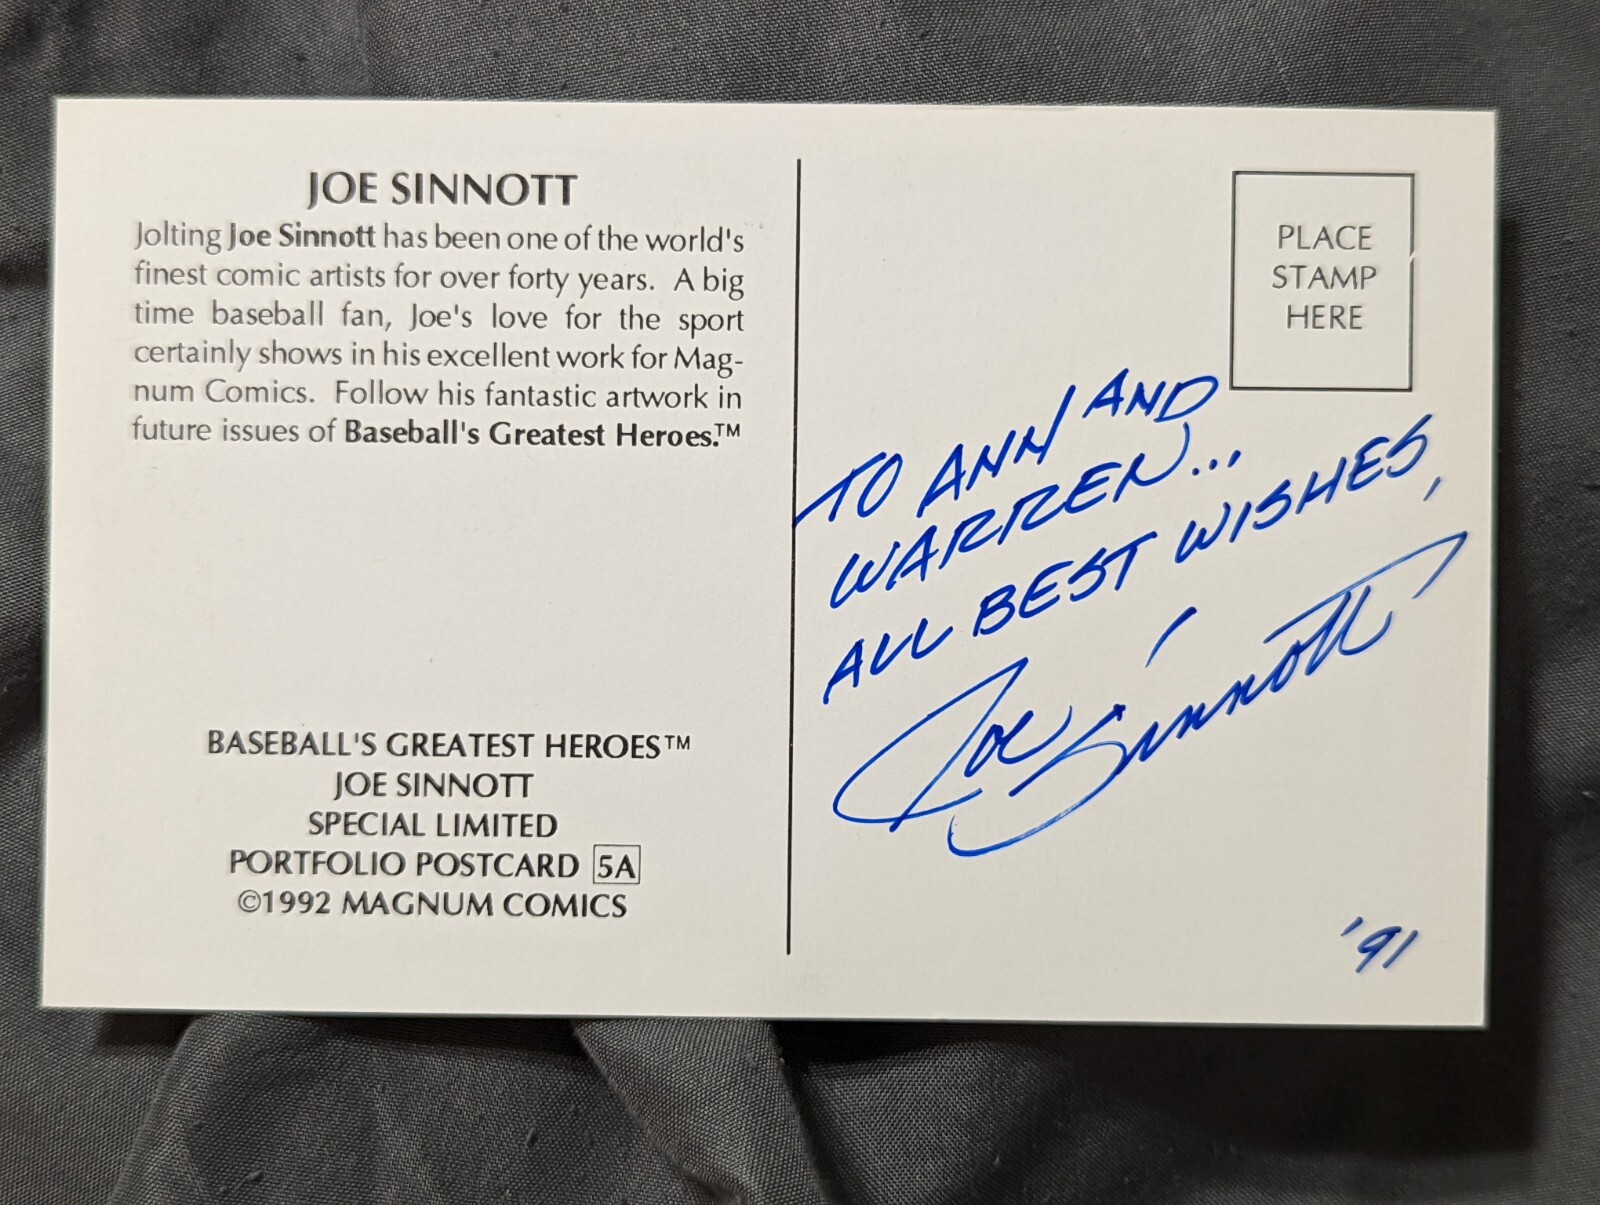 JOE SINNOTT
Jolting Joe Sinnott has been one of the world's
finest comic artists for over forty years. A big
time baseball fan, Joe's love for the sport
certainly shows in his excellent work for Mag-
num Comics. Follow his fantastic artwork in
future issues of Baseball's Greatest Heroes.™
BASEBALL'S GREATEST HEROES™
JOE SINNOTT
SPECIAL LIMITED
PORTFOLIO POSTCARD 5A
©1992 MAGNUM COMICS
PLACE
STAMP
HERE
TO ANN AND
WARREN...
ALL BEST WISHES,
Joe Sinnott
'91